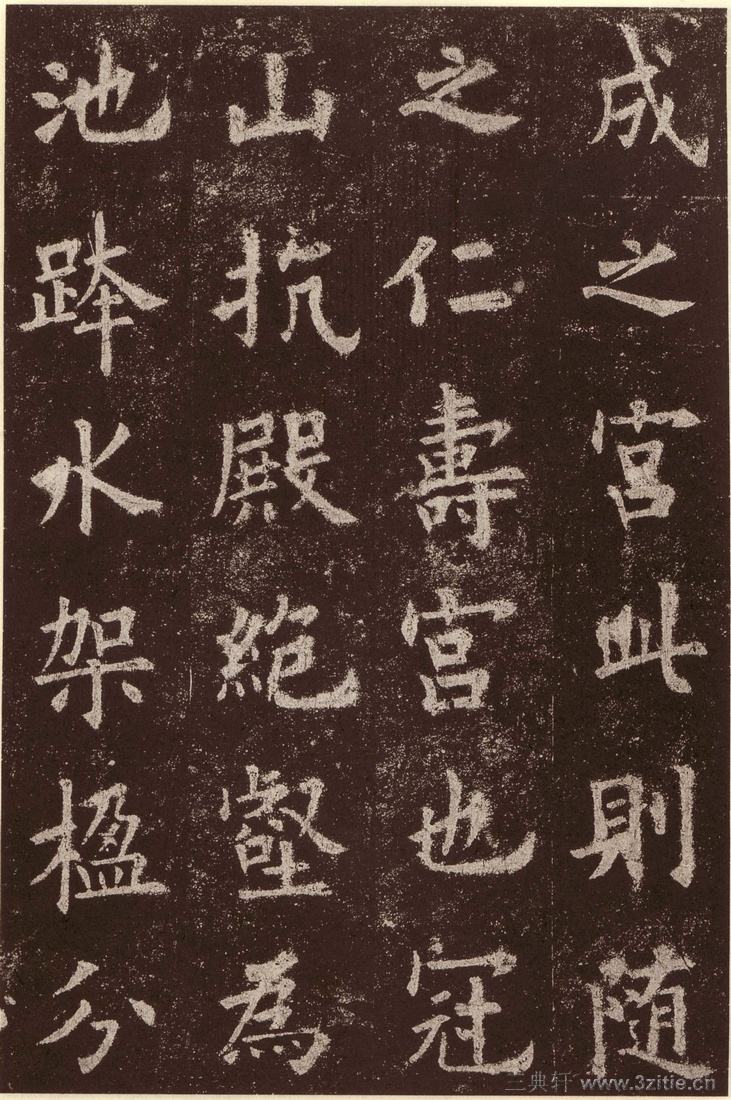 成之宮此則随
之仁壽宮也冠
山抗殿絶壑為
池跨水架楹分
三典轩 www.3zitie.cn